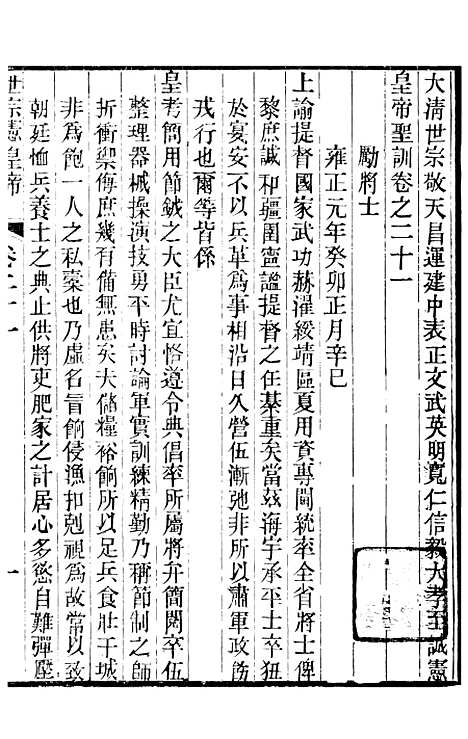 大清世宗敬天昌運建中表正文武英明寬仁信毅大孝至誠憲
皇帝聖訓卷之二十一
勵將士
雍正元年癸卯正月辛巳
上諭提督國家武功赫濯綏靖區夏用資專閫統率全省將士俾
黎庶諴和疆圉寧謐提督之任綦重矣當茲海宇承平士卒狃
於宴安不以兵革為事相沿日久營伍漸弛非所以肅軍政飭
戎行也爾等皆係
皇考簡用節鉞之大臣尤宜恪遵令典倡率所屬將弁簡閱卒伍
整理器械操演技勇平時討論軍實訓練精勤乃稱節制之師
折衝禦侮庶幾有備無患矣夫儲糧裕餉所以足兵食壯干城
非為飽一人之私橐也乃虛名冒餉侵漁扣剋視為故常以致
朝廷恤兵養士之典止供將吏肥家之計居心多慾自難彈壓
世宗憲皇帝
卷二十一
一